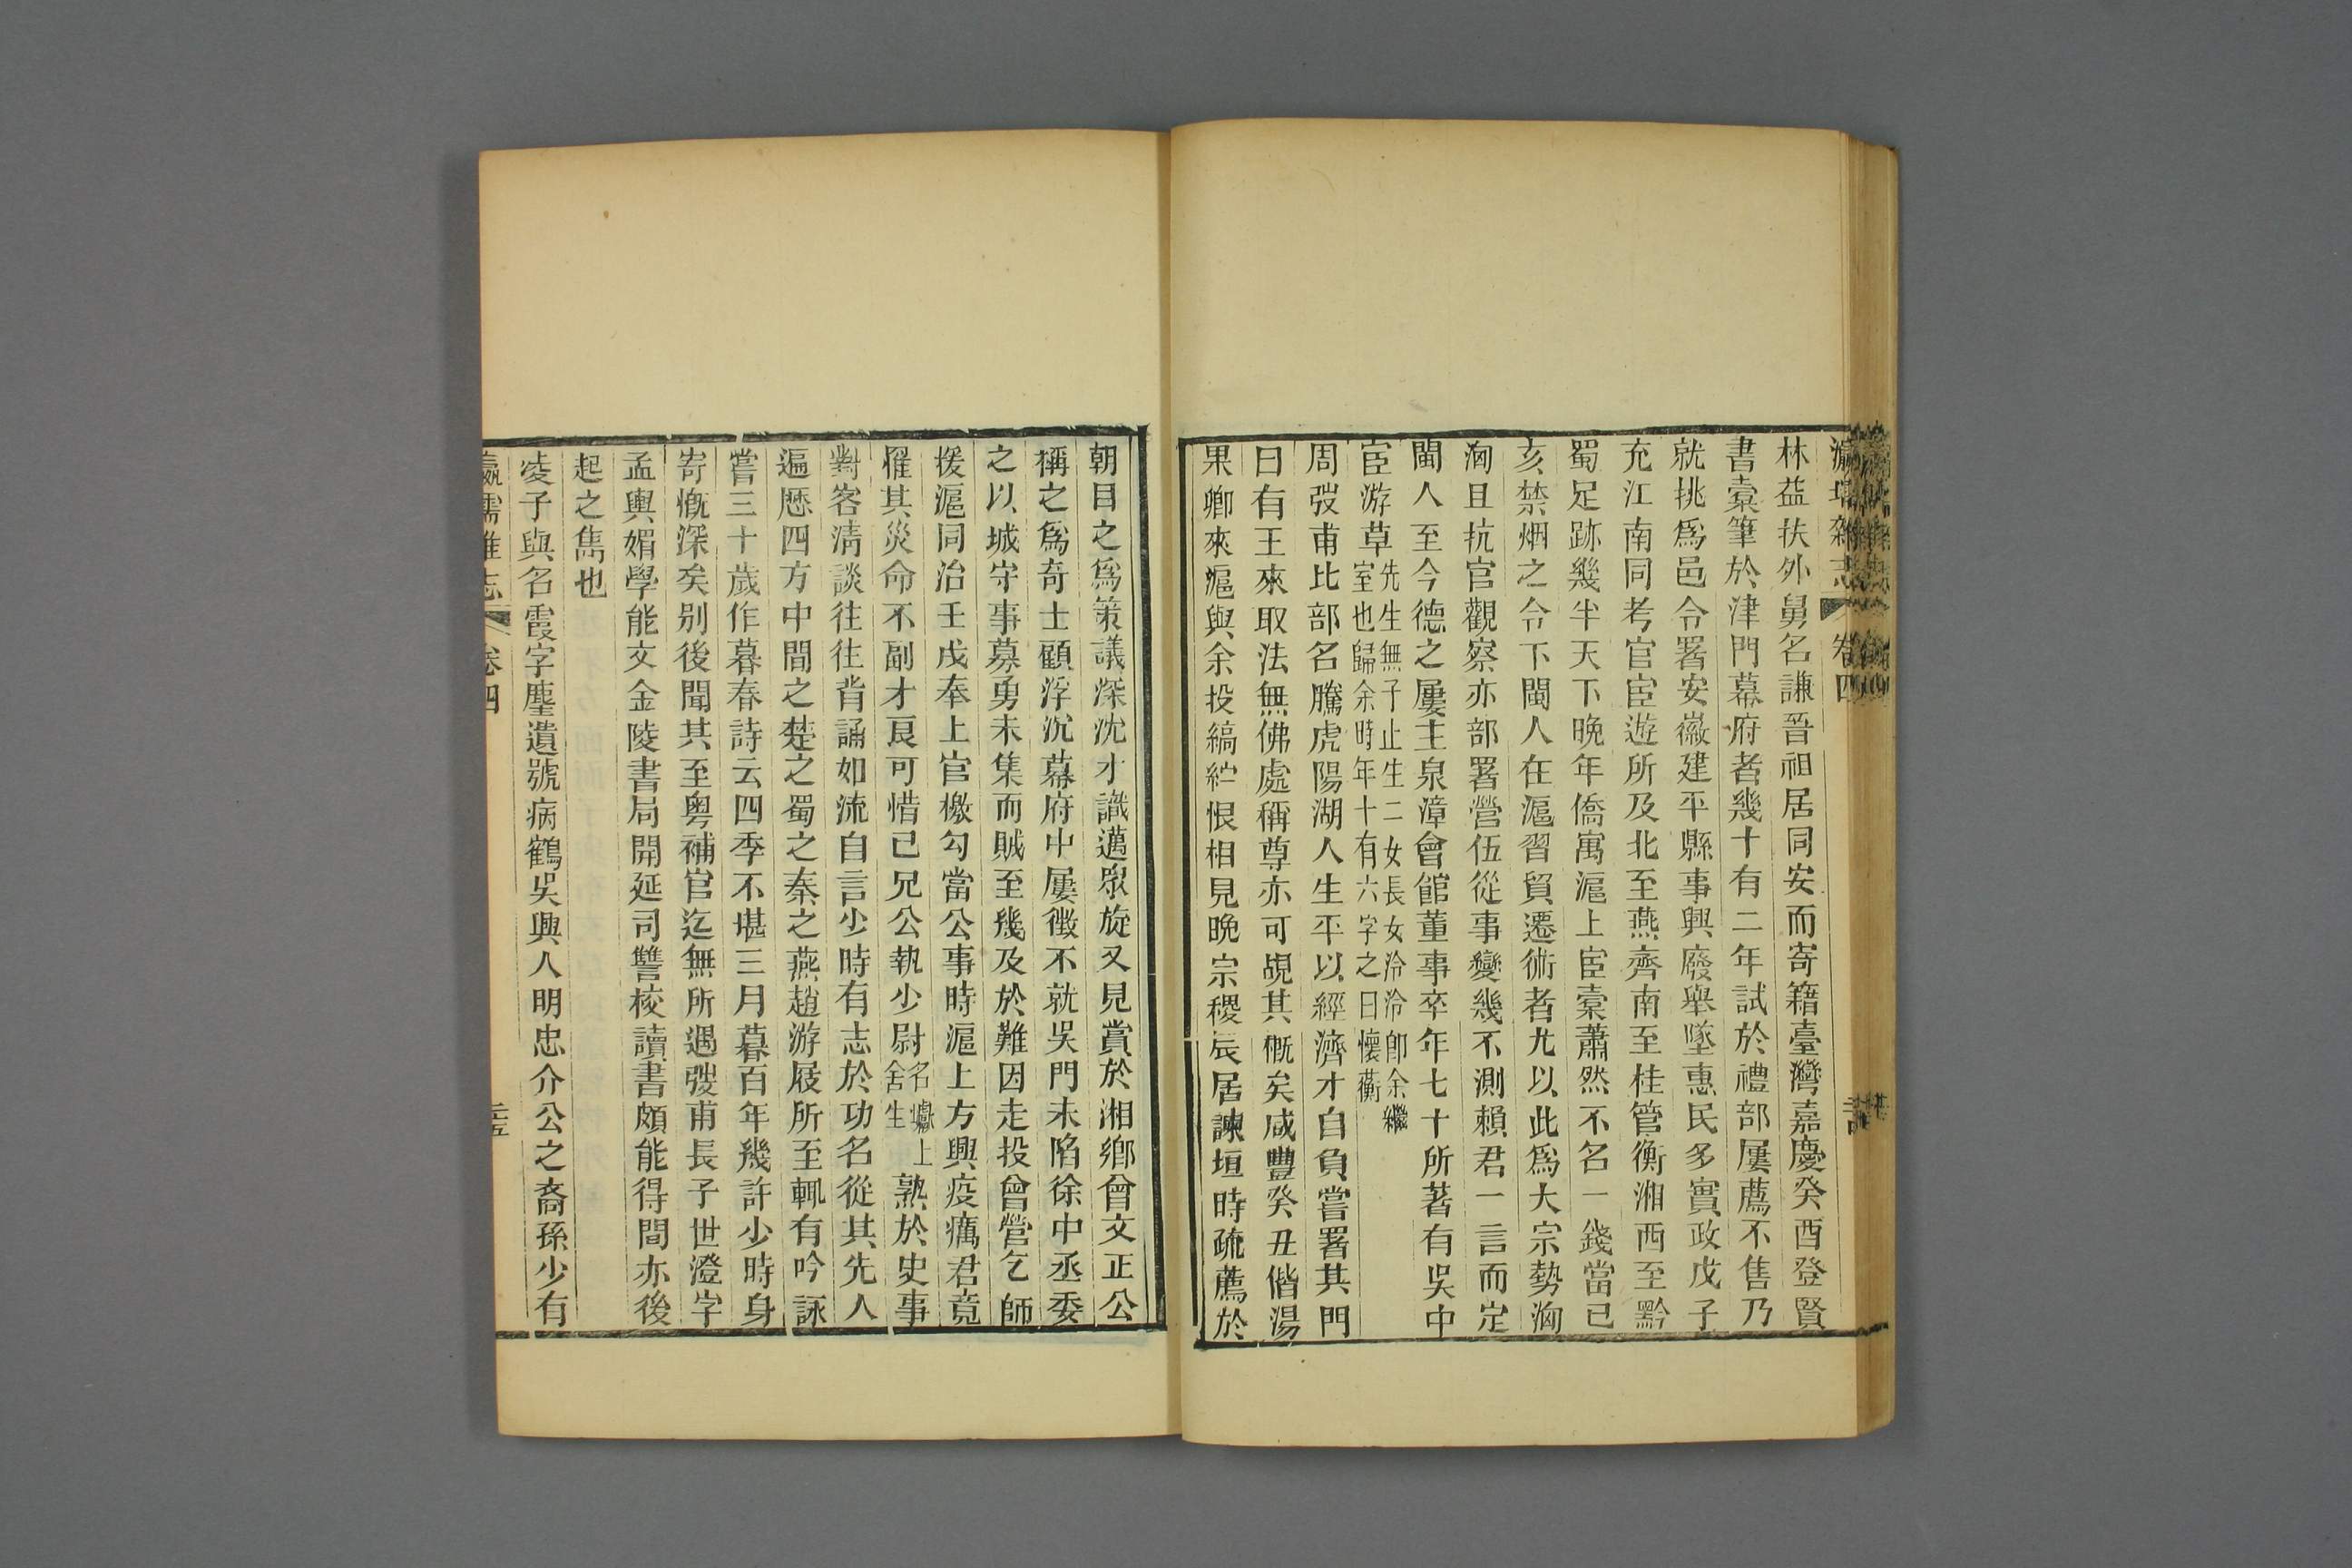 瀛壖雜志 卷四
林益扶外舅名謙晉祖居同安而寄籍臺灣嘉慶癸酉登賢
書橐筆於津門幕府者幾十有二年試於禮部屢薦不售乃
就挑爲邑令署安徽建平縣事興廢舉墜惠民多實政戊子
充江南同考官宦遊所及北至燕齊南至桂管衡湘西至黔
蜀足跡幾半天下晚年僑寓滬上宦橐蕭然不名一錢當己
亥禁烟之令下閩人在滬習貿遷術者尤以此爲大宗勢洶
洶且抗官觀察亦部署營伍從事變幾不測賴君一言而定
閩人至今德之屢主泉漳會館董事卒年七十所著有吳中
宦游草先生無子止生二女長女泠泠卽余繼
室也歸余時年十有六字之曰懷蘅
周弢甫比部名騰虎陽湖人生平以經濟才自負嘗署其門
曰有王來取法無佛處稱尊亦可覘其槪矣咸豐癸丑偕湯
果卿來滬與余投縞紵恨相見晚宗稷辰居諫垣時疏薦於
朝目之爲策議深沈才識邁眾旋又見賞於湘鄉曾文正公
稱之爲奇士顧浮沉幕府中屢徵不就吳門未陷徐中丞委
之以城守事募勇未集而賊至幾及於難因走投曾營乞師
援滬同治壬戌奉上官檄勾當公事時滬上方興疫癘君竟
罹其災命不副才良可惜已兄公執少尉名爔上
舍生熟於史事
對客清談往往背誦如流自言少時有志於功名從其先人
遍歷四方中間之楚之蜀之秦之燕趙游屐所至輒有吟詠
嘗三十歲作暮春詩云四季不堪三月暮百年幾許少時身
寄慨深矣别後聞其至粵補官迄無所遇弢甫長子世澄字
孟輿媚學能文金陵書局開延司讐校讀書頗能得間亦後
起之雋也
凌子與名霞字塵遺號病鶴吳興人明忠介公之裔孫少有
瀛壖雜志 卷四 二五